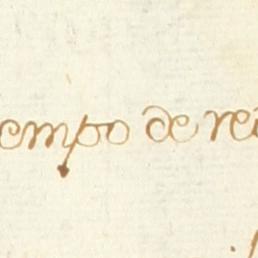 empo de re